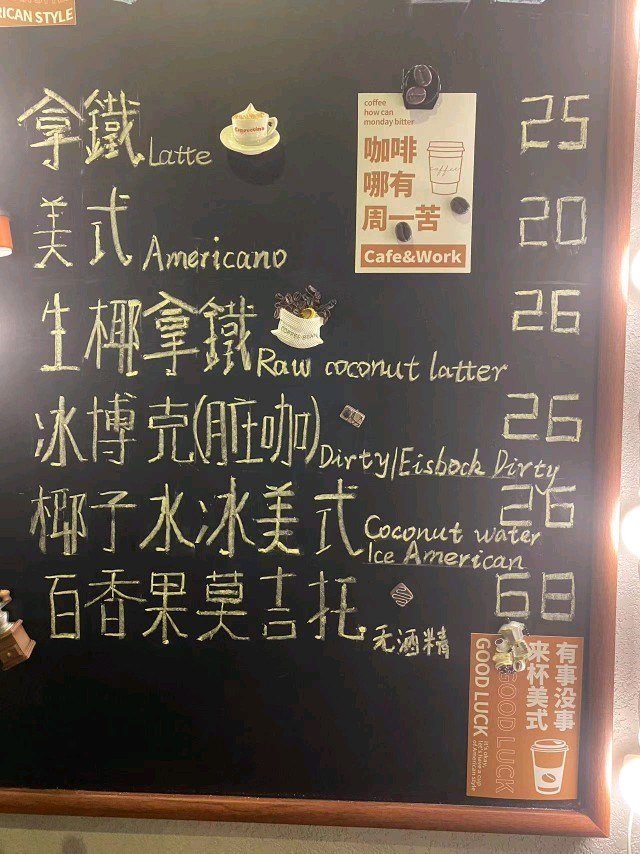 RICAN STYLE
拿鐵 Latte 25
Cappuccino
coffee
how can
monday bitter
咖啡
哪有
周一苦
coffee
Cafe&Work
美式 Americano 20
生椰拿鐵 Raw coconut latter 26
COFFEE BEAN
冰博克(脏咖) Dirty/Eisbock Dirty 26
椰子水冰美式 Coconut water 26
Ice American
百香果莫吉托 68
无酒精
有事没事
来杯美式
GOOD LUCK
GOOD LUCK
It's okay,
let's have a cup
of American style